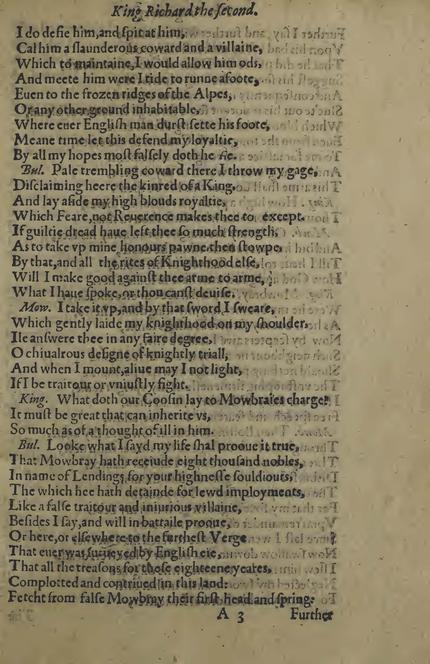 King Richard the second.
I do defie him, and spit at him,
Cal him a slaunderous coward and a villaine,
Which to maintaine, I would allow him ods,
And meete him were I tide to runne afoote,
Euen to the frozen ridges of the Alpes,
Or any other ground inhabitable,
Where euer English man durst sette his foote,
Meane time let this defend my loyaltie,
By all my hopes most falsely doth he lie.
Bul. Pale trembling coward there I throw my gage,
Disclaiming heere the kinred of a King,
And lay aside my high blouds royaltie,
Which Feare, not Reuerence makes thee to except.
If guiltie dread haue left thee so much strength,
As to take vp mine honours pawne, then stowpe,
By that, and all the rites of Knighthood else,
Will I make good against thee arme to arme,
What I haue spoke, or thou canst deuise.
Mow. I take it vp, and by that sword I sweare,
Which gently laide my knighthood on my shoulder,
Ile answere thee in any faire degree,
O chiualrous designe of knightly triall,
And when I mount, aliue may I not light,
If I be traitour or vniustly fight.
King. What doth our Coosin lay to Mowbraies charge?
It must be great that can inherite vs,
So much as of a thought of ill in him.
Bul. Looke what I sayd my life shal prooue it true,
That Mowbray hath receiude eight thousand nobles,
In name of Lendings for your highnesse souldiours,
The which hee hath detainde for lewd imployments,
Like a false traitour and iniurious villaine,
Besides I say, and will in battaile proue,
Or here, or elsewhere to the furthest Verge
That euer was surueyed by English eie,
That all the treasons for these eighteene yeares,
Complotted and contriued in this land:
Fetcht from false Mowbray their first head and spring:
A 3 Further